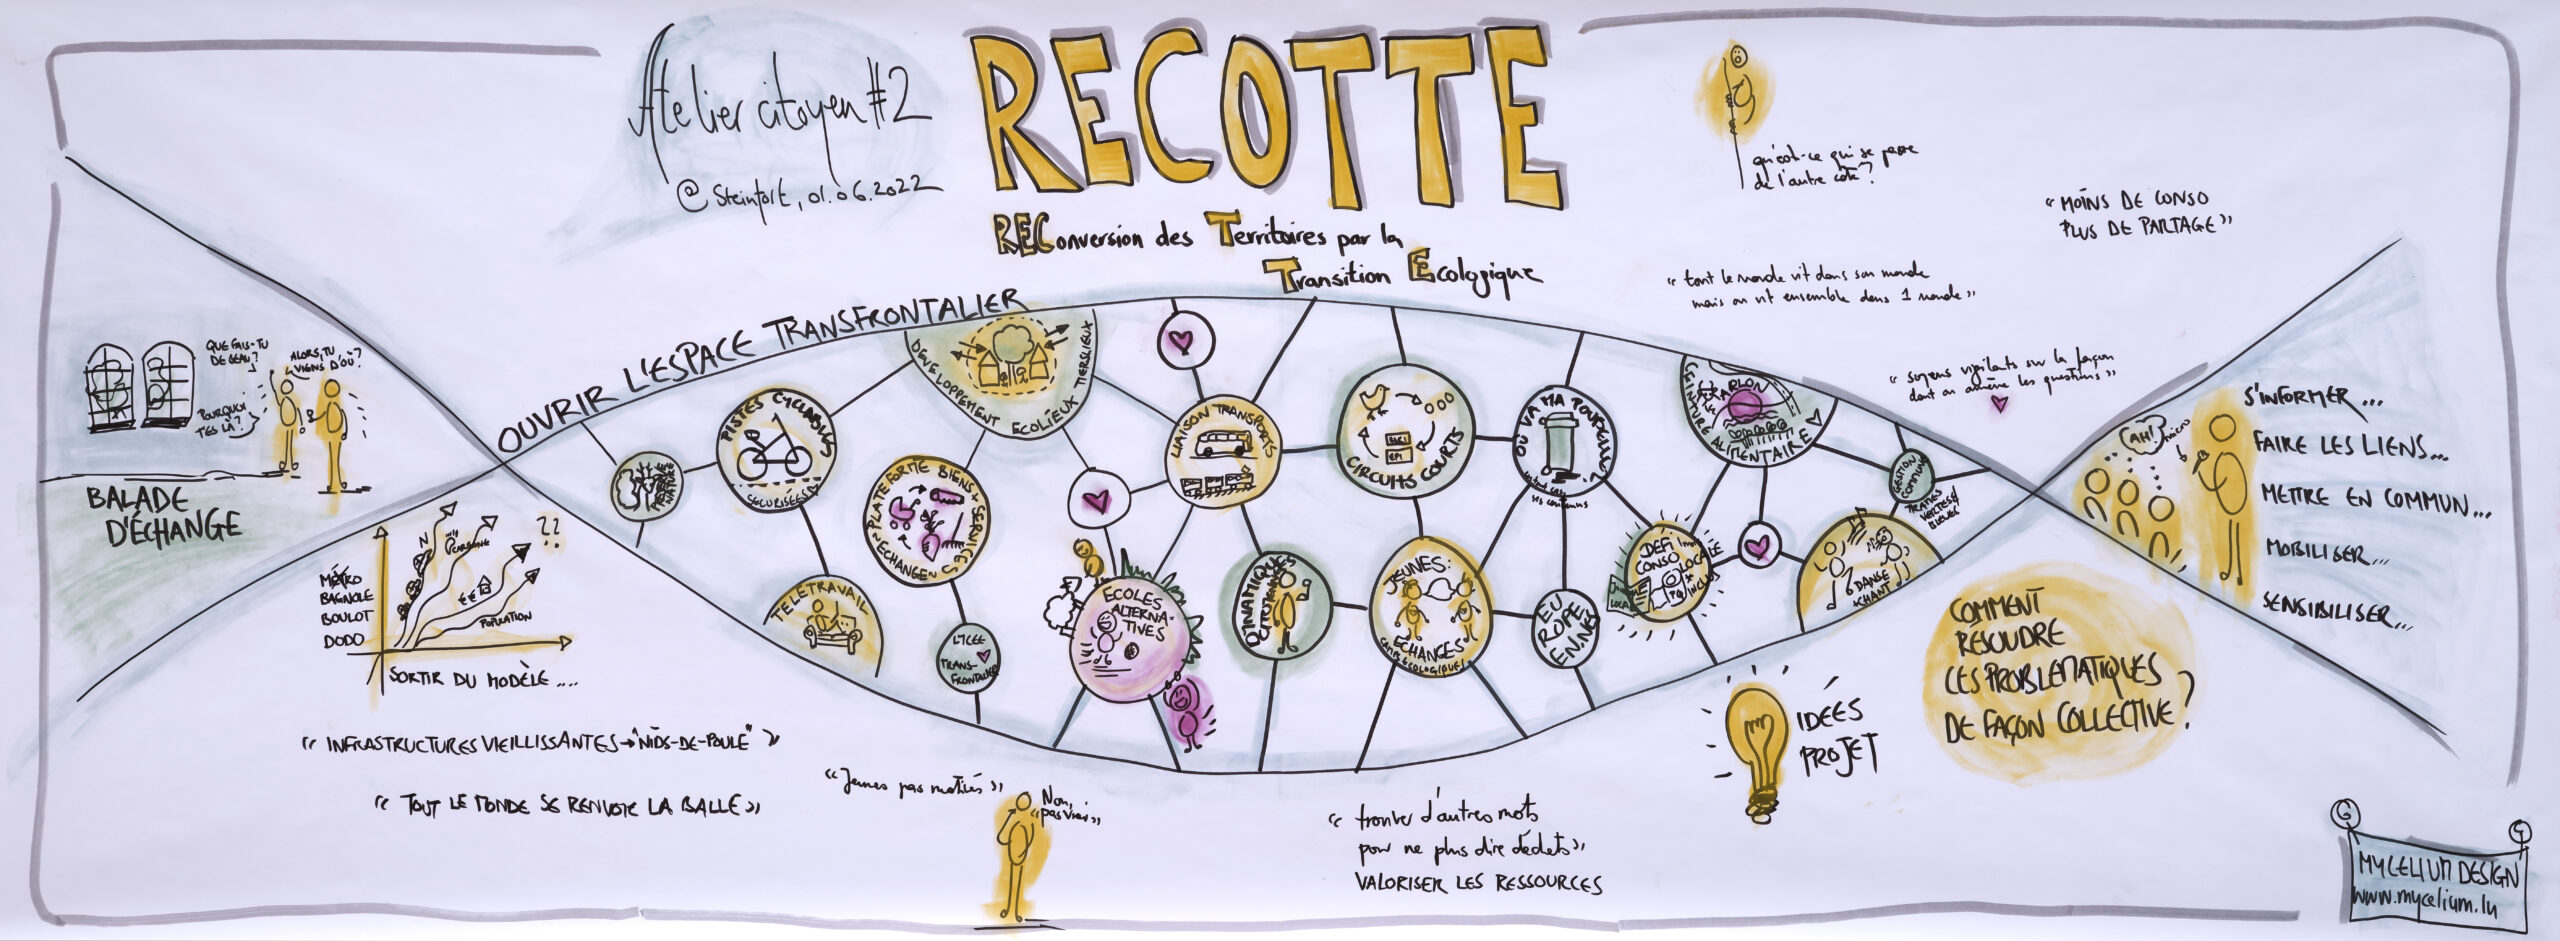 Atelier citoyen #2
@ Steinfort, 01.06.2022
RECOTTE
REConversion des Territoires par la
Transition Ecologique
qu'est-ce qui se passe
de l'autre côté?
"MOINS DE CONSO
PLUS DE PARTAGE"
"tout le monde vit dans son monde
mais on vit ensemble dans 1 monde"
"soyons vigilants sur la façon
dont on amène les questions"
QUE FAIS-TU
DE BEAU?
ALORS, TU
VIENS D'OÙ?
POURQUOI
T'ES LÀ?
BALADE
D'ÉCHANGE
OUVRIR L'ESPACE TRANSFRONTALIER
PISTES CYCLABLES
SÉCURISÉES
DEVELOPPEMENT ECOLIEUX TIERSLIEUX
PLATEFORME BIENS + SERVICES
ECHANGE
TÉLÉTRAVAIL
LYCEE
TRANS-
FRONTALIER
ECOLES
ALTERNA-
TIVES
LIAISON TRANSPORTS
CIRCUITS COURTS
DYNAMIQUES
CITOYENNES
JEUNES:
ECHANGES
OÙ VA MA POUBELLE?
EU
ROPÉ
ENNES
ARLON
CEINTURE ALIMENTAIRE
DEFI
CONSO
LOCALE
GESTION
COMMUNE
TRAMES
VERTES &
BLEUES
DANSE
+ CHANT
AH!
micro
S'INFORMER...
FAIRE LES LIENS...
METTRE EN COMMUN...
MOBILISER...
SENSIBILISER...
COMMENT
RESOUDRE
CES PROBLEMATIQUES
DE FAÇON COLLECTIVE?
IDÉES
PROJET
MÉTRO
BAGNOLE
BOULOT
DODO
N
CARBONE
€€
POPULATION
??
SORTIR DU MODÈLE....
"INFRASTRUCTURES VIEILLISSANTES → "NIDS-DE-POULE""
"TOUT LE MONDE SE RENVOIE LA BALLE"
"Jeunes pas motivés"
Non,
"pas vrai"
"trouver d'autres mots
pour ne plus dire déchets"
VALORISER LES RESSOURCES
MYCELIUM DESIGN
www.mycelium.lu